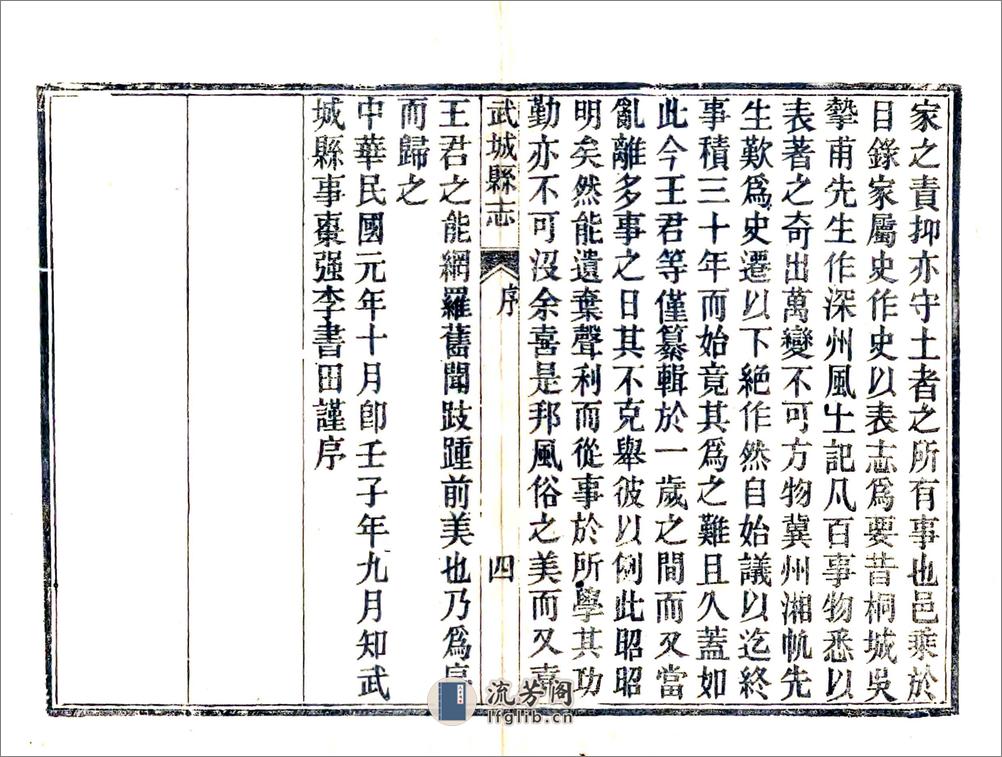 家之責抑亦守土者之所有事也邑乘於
目錄家屬史作史以表志爲要昔桐城吳
摯甫先生作深州風土記凡百事物悉以
表著之奇出萬變不可方物冀州湘帆先
生歎爲史遷以下絶作然自始議以迄終
事積三十年而始竟其爲之難且久蓋如
此今王君等僅纂輯於一歲之間而又當
亂離多事之日其不克舉彼以例此昭昭
明矣然能遺棄聲利而從事於所學其功
勤亦不可沒余喜是邦風俗之美而又喜
武城縣志 序 四
王君之能網羅舊聞跂踵前美也乃爲序
而歸之
中華民國元年十月卽壬子年九月知武
城縣事棗强李書田謹序
流芳阁
lfglib.cn